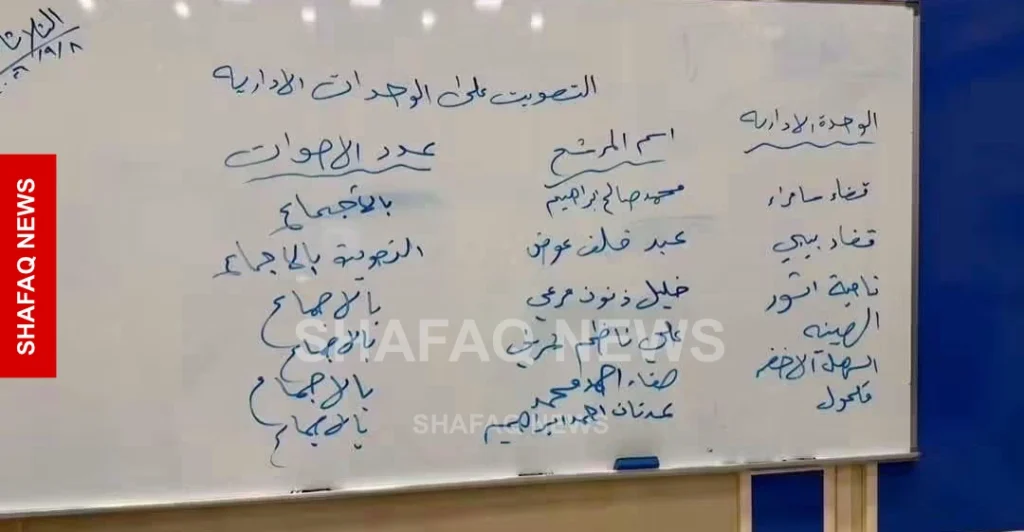 الثلاثاء
التصويت على الوحدات الادارية
الوحدة الادارية اسم المرشح عدد الاصوات
قضاء سامراء محمد صالح ابراهيم بالأجماع
قضاء بيجي عبد خلف عوض التصويت بالاجماع
ناحية اشور خليل ذنون مرعي بالاجماع
الصينيه علي ناظم بالاجماع
السهل الاخضر صفاء احمد محمد بالاجماع
عدنان احمد ابراهيم بالاجماع
SHAFAQ NEWS
SHAFAQ NEWS
SHAFAQ NEWS